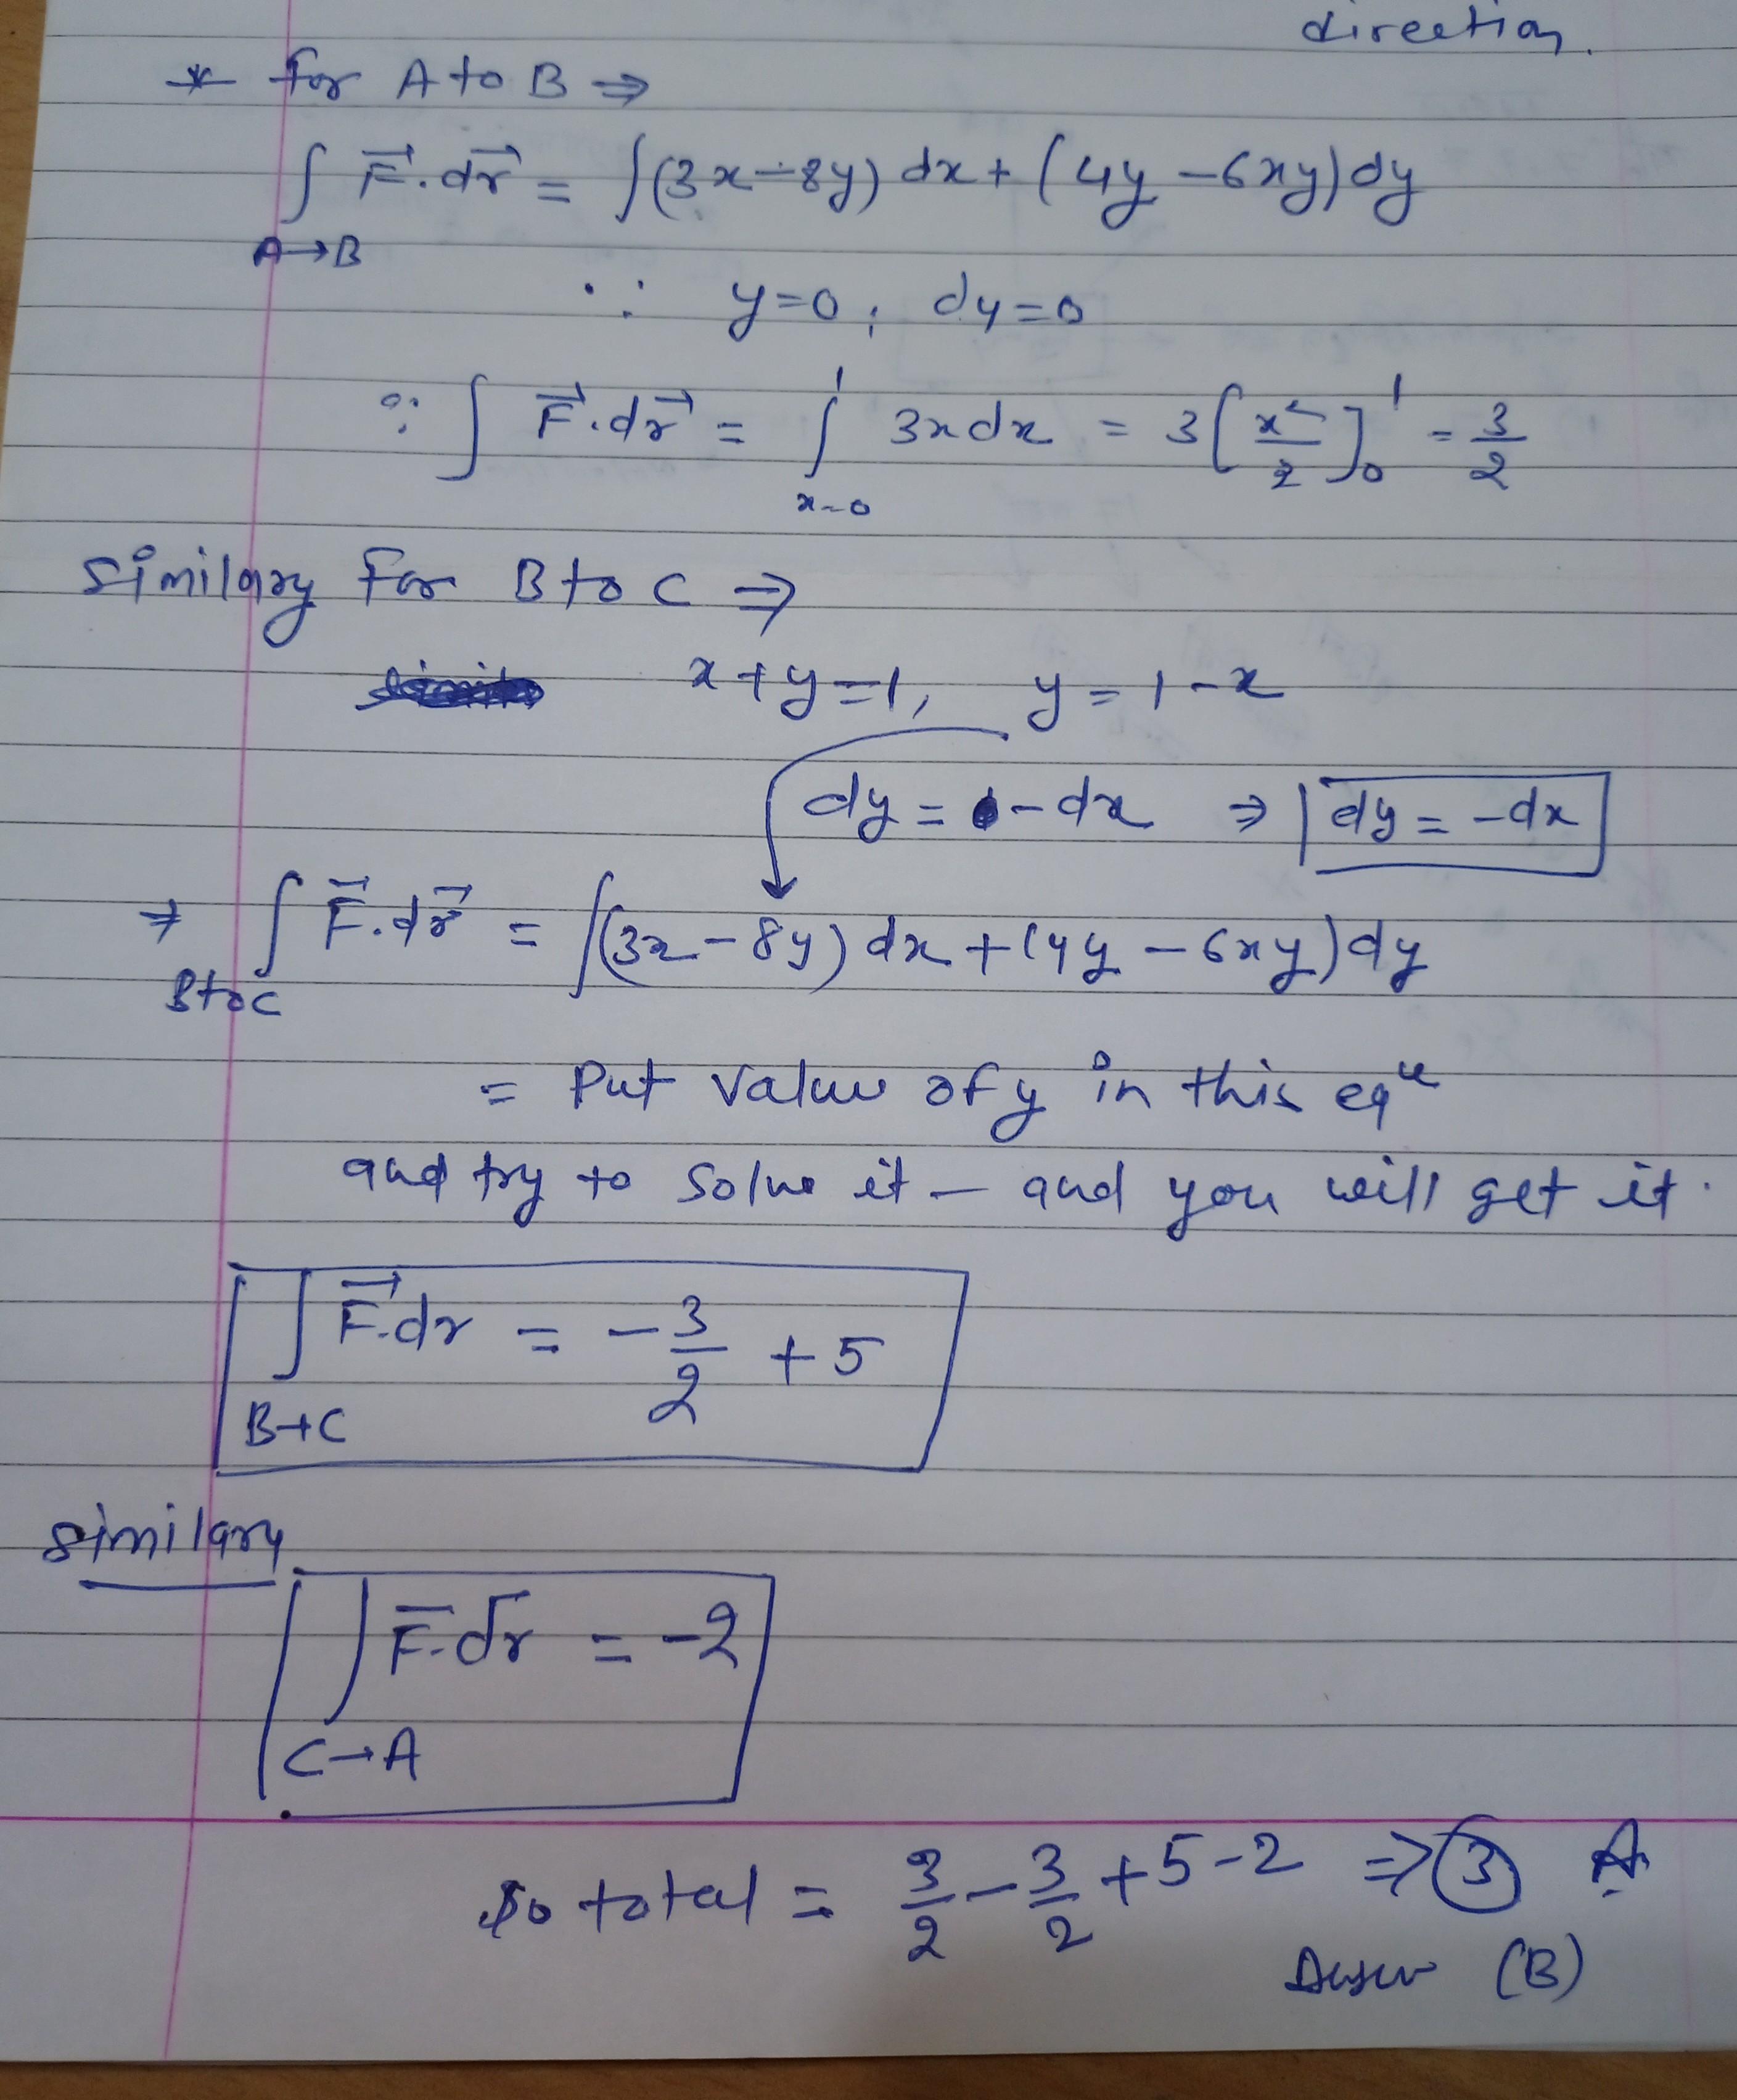 direction.
* for A to B ⇒
∫ F⃗.dr⃗ = ∫(3x-8y) dx + (4y - 6xy)dy
A→B
∵ y=0, dy=0
∴ ∫ F⃗.dr⃗ = ∫ 3x dx = 3[x²/2]₀¹ = 3/2
x=0 1
Similary for B to C ⇒
x+y=1, y=1-x
dy = -dx ⇒ dy = -dx
⇒ ∫ F⃗.dr⃗ = ∫(3x-8y) dx + (4y - 6xy)dy
B to C
= Put value of y in this eqⁿ
and try to solve it - and you will get it.
∫ F⃗.dr = -3/2 + 5
B→C
Similary
∫ F.dr = -2
C→A
So total = 3/2 - 3/2 + 5-2 ⇒ 3 A
(B)